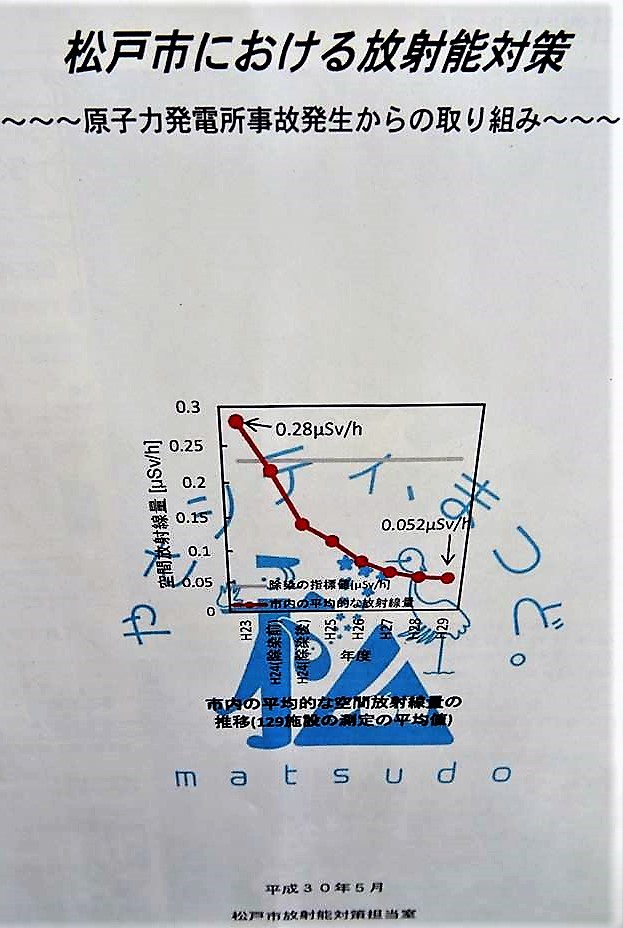 松戸市における放射能対策
～～～原子力発電所事故発生からの取り組み～～～
0.3
0.25
0.2
0.15
0.1
0.05
0
空間放射線量 [μSv/h]
0.28μSv/h
0.052μSv/h
除染の指標値(μSv/h)
市内の平均的な放射線量
H23
H24(除染前)
H24(除染後)
H25
H26
H27
H28
H29
年度
市内の平均的な空間放射線量の
推移(129施設の測定の平均値)
matsudo
平成30年5月
松戸市放射能対策担当室